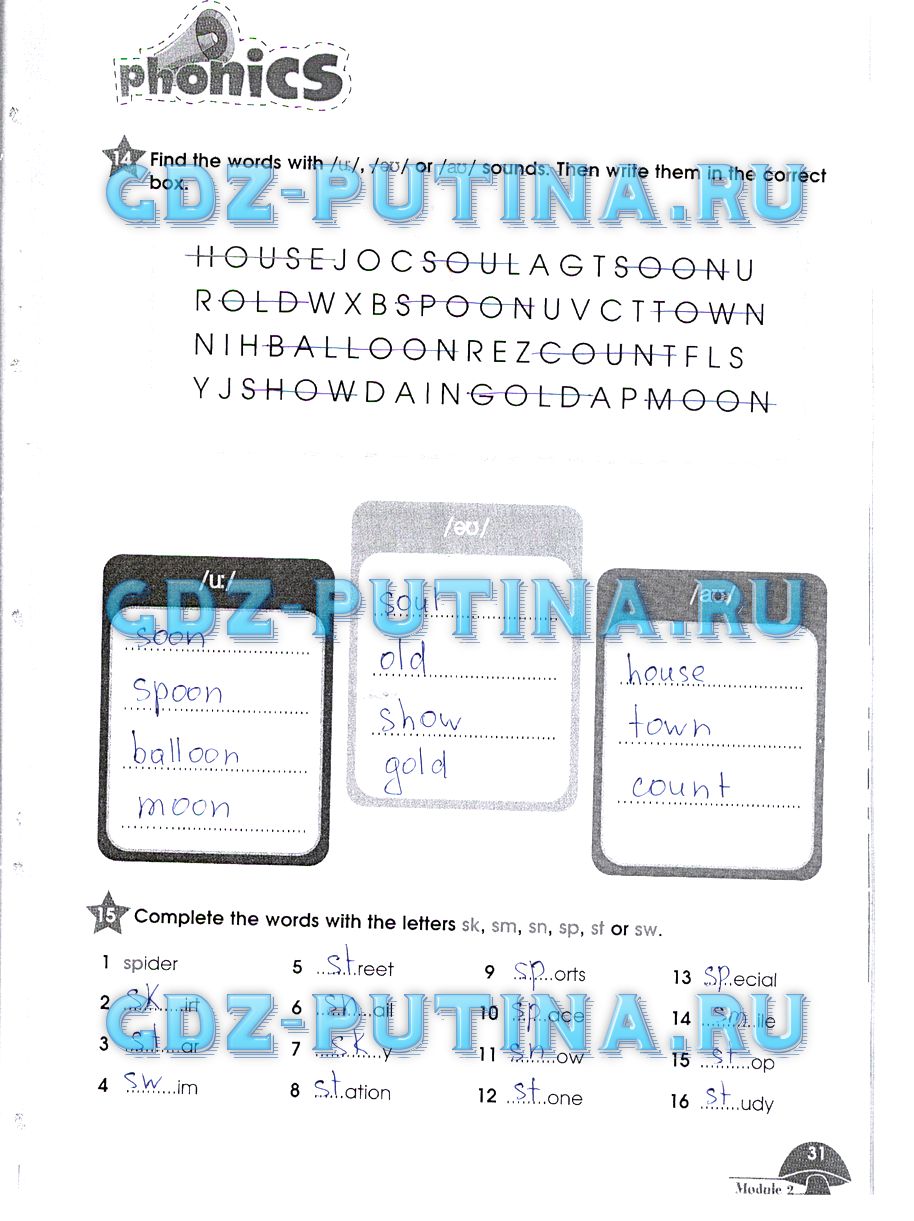 phonics
14 Find the words with /u:/, /əʊ/ or /aʊ/ sounds. Then write them in the correct
box.
GDZ-PUTINA.RU
HOUSEJOCSOULAGTSOONU
ROLDWXBSPOONUVCTTOWN
NIHBALLOONREZCOUNTFLS
YJSHOWDAINGOLDAPMOON
/u:/
soon
spoon
balloon
moon
/əʊ/
soul
old
show
gold
/aʊ/
house
town
count
GDZ-PUTINA.RU
15 Complete the words with the letters sk, sm, sn, sp, st or sw.
1 spider
2 sk irt
3 st ar
4 sw im
5 st reet
6 sn ail
7 sk y
8 st ation
9 sp orts
10 sp ace
11 sn ow
12 st one
13 sp ecial
14 sm ile
15 st op
16 st udy
GDZ-PUTINA.RU
31
Module 2